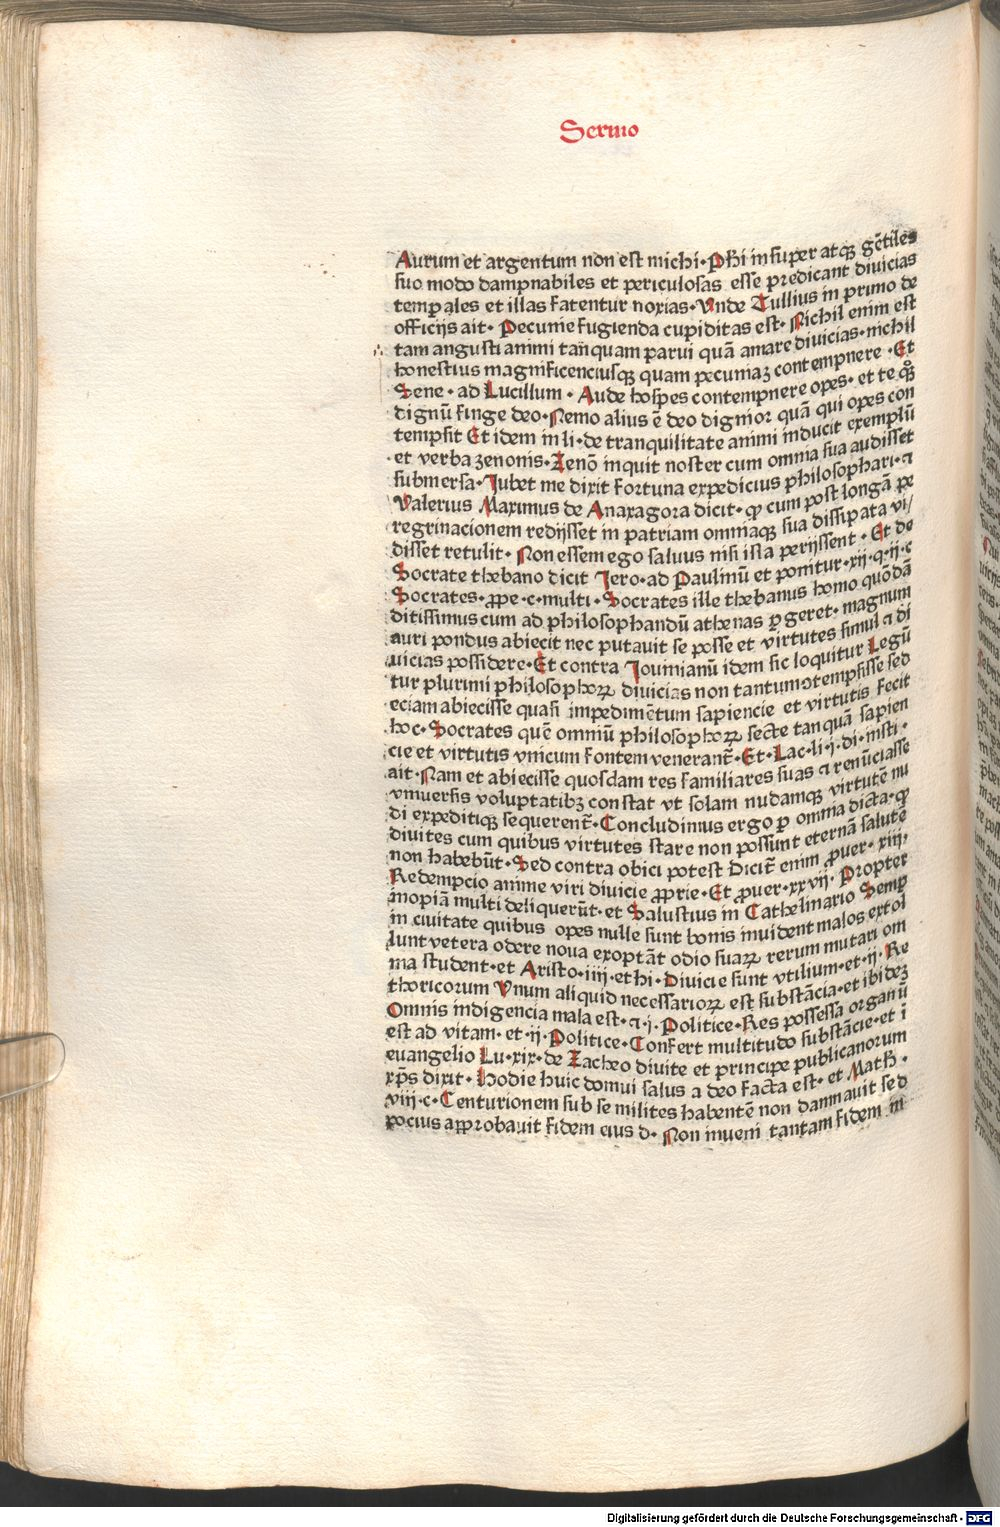 Sermo
Aurum et argentum non est michi· Phi insuper atqꝫ gētiles
suo modo dampnabiles et periculosas esse predicant diuicias
temporales et illas fatentur noxias· Vnde Tullius in primo de
officijs ait· Pecunie fugienda cupiditas est· Nichil enim est
tam angusti animi tanquam parui quā amare diuicias· nichil
honestius magnificenciusqꝫ quam pecuniaꝫ contempnere · Et
Sene · ad Lucillum · Aude hospes contempnere opes· et te qꝫ
dignū finge deo· Nemo alius ē deo dignior quā qui opes con
tempsit Et idem in li· de tranquilitate animi inducit exemplū
et verba zenonis· Zenō inquit noster cum omnia sua audisset
submersa· Jubet me dixit fortuna expedicius philosophari· ⁊
Valerius Maximus de Anaxagora dicit· ꝙ cum post longā pe
regrinacionem redijsset in patriam omniaqꝫ sua dissipata vi/
disset retulit· Non essem ego saluus nisi ista perijssent · Et de
Socrate thebano dicit Jero· ad Paulinū et ponitur· xij· q· ij· c
Socrates· ꝓpe· c· multi· Socrates ille thebanus homo quōdā
ditissimus cum ad philosophandū athenas ꝑgeret· magnum
auri pondus abiecit nec putauit se posse et virtutes simul ⁊ di
uicias possidere· Et contra Jouinianū idem sic loquitur Legū
tur plurimi philosophoꝝ diuicias non tantum ꝯtempsisse sed
eciam abiecisse quasi impedimētum sapiencie et virtutis fecit
hoc· Socrates quē omniū philosophoꝝ secte tanquā sapien
cie et virtutis vnicum fontem venerant̄· Et· Lac· li· j· di· insti·
ait· Nam et abiecisse quosdam res familiares suas ⁊ renūciasse
vniuersis voluptatibꝫ constat vt solam nudamqꝫ virtutē nu
di expeditiqꝫ sequerent̄· Concludimus ergo ꝑ omnia dicta· ꝙ
diuites cum quibus virtutes stare non possunt eternā salutē
non habebūt· Sed contra obici potest Dicit̄ enim ꝓuer· xiij·
Redempcio anime viri diuicie ꝓprie· Et ꝓuer· xxvij· Propter
inopiā multi deliquerūt· et Salustius in Cathelinario Semꝑ
in ciuitate quibus opes nulle sunt bonis inuident malos extol
lunt vetera odere noua exoptāt odio suaꝝ rerum mutari om
nia student· et Aristo· iiij· ethi· Diuicie sunt vtilium· et· ij· Re
thoricorum Vnum aliquid necessarioꝝ est substācia· et ibideꝫ
Omnis indigencia mala est· ⁊· j· Politice· Res possessa organū
est ad vitam· et· ij· Politice· Confert multitudo substācie· et ī
euangelio Lu· xix· de Zacheo diuite et principe publicanorum
xp̄s dixit· Hodie huic domui salus a deo facta est· et Math·
viij· c· Centurionem sub se milites habentē non damnauit sed
pocius approbauit fidem eius d· Non inueni tantam fidem in
Digitalisierung gefördert durch die Deutsche Forschungsgemeinschaft - DFG